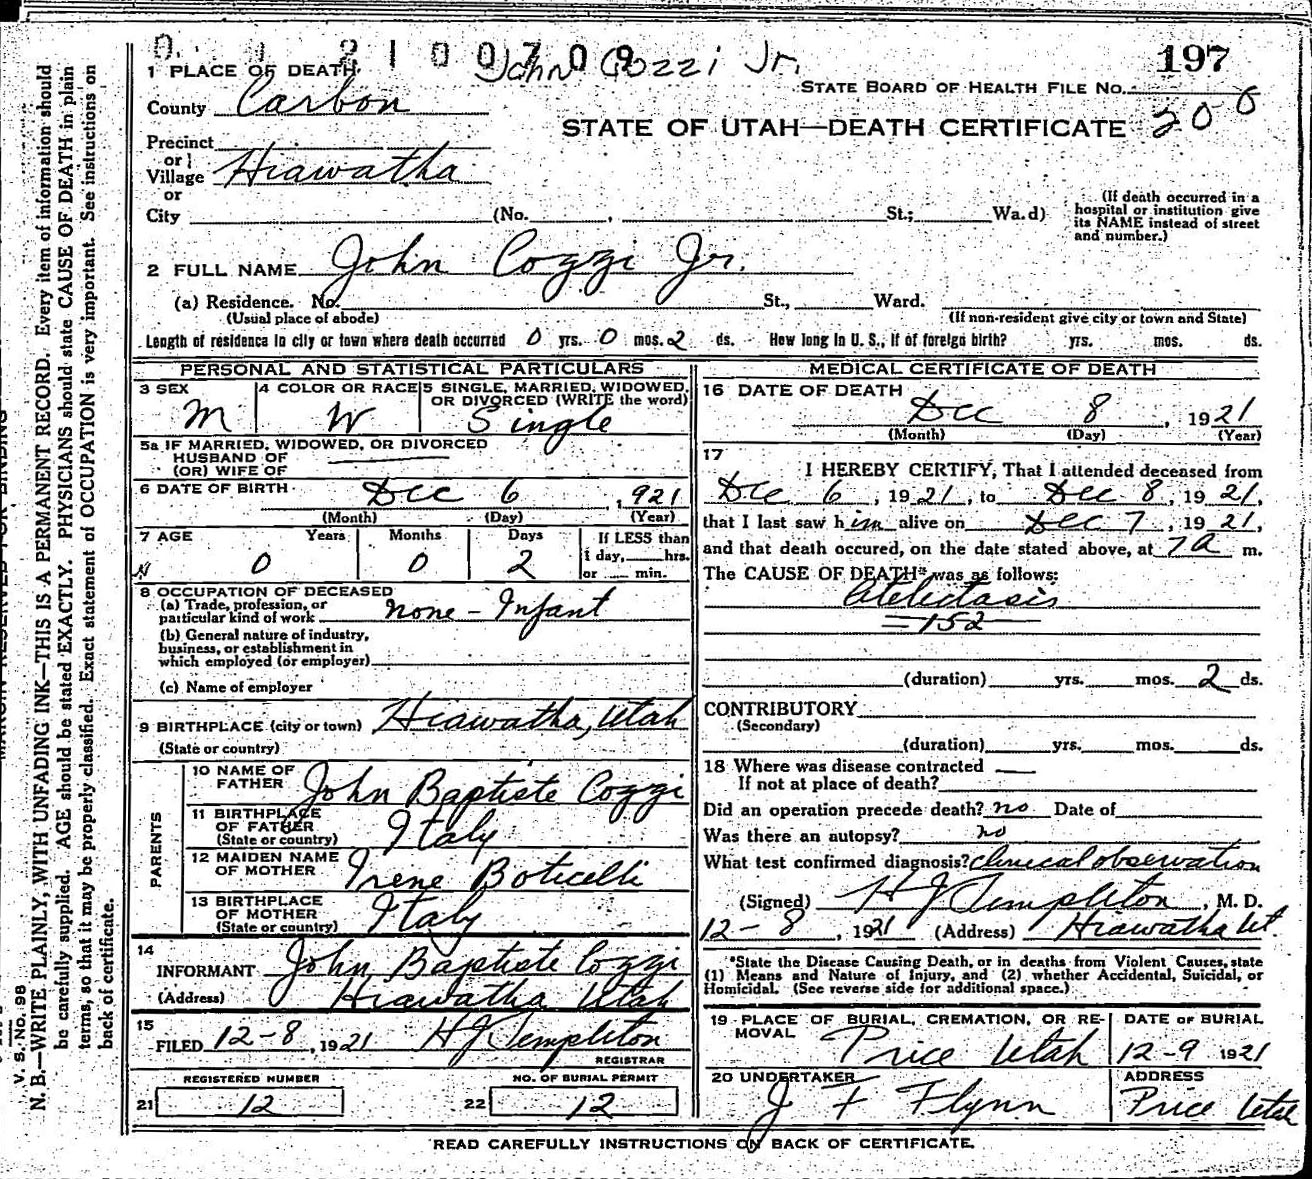 2100709 John Cozzi Jr.
197
1 PLACE OF DEATH
STATE BOARD OF HEALTH FILE NO.
County Carbon
STATE OF UTAH—DEATH CERTIFICATE 200
Precinct
or
Village Hiawatha
or
City (No. , St.; Wa.d)
(If death occurred in a hospital or institution give its NAME instead of street and number.)
2 FULL NAME John Cozzi Jr.
(a) Residence. No. St., Ward.
(Usual place of abode) (If non-resident give city or town and State)
Length of residence in city or town where death occurred 0 yrs. 0 mos. 2 ds. How long in U. S., if of foreign birth? yrs. mos. ds.
PERSONAL AND STATISTICAL PARTICULARS
3 SEX M
4 COLOR OR RACE W
5 SINGLE, MARRIED, WIDOWED, OR DIVORCED (WRITE the word) Single
5a IF MARRIED, WIDOWED, OR DIVORCED
HUSBAND OF
(OR) WIFE OF
6 DATE OF BIRTH Dec 6, 921
(Month) (Day) (Year)
7 AGE Years Months Days If LESS than
0 0 2 1 day, hrs.
or min.
8 OCCUPATION OF DECEASED
(a) Trade, profession, or
particular kind of work none - Infant
(b) General nature of industry,
business, or establishment in
which employed (or employer)
(c) Name of employer
9 BIRTHPLACE (city or town) Hiawatha, Utah
(State or country)
PARENTS
10 NAME OF
FATHER John Baptiste Cozzi
11 BIRTHPLACE
OF FATHER
(State or country) Italy
12 MAIDEN NAME
OF MOTHER Irene Boticelli
13 BIRTHPLACE
OF MOTHER
(State or country) Italy
14
INFORMANT John Baptiste Cozzi
(Address) Hiawatha Utah
15
FILED 12-8, 1921 H J Templeton
REGISTRAR
REGISTERED NUMBER NO. OF BURIAL PERMIT
21 12 22 12
MEDICAL CERTIFICATE OF DEATH
16 DATE OF DEATH
Dec 8, 1921
(Month) (Day) (Year)
17
I HEREBY CERTIFY, That I attended deceased from
Dec 6, 1921, to Dec 8, 1921,
that I last saw him alive on Dec 7, 1921,
and that death occured, on the date stated above, at 7a m.
The CAUSE OF DEATH* was as follows:
Atelectasis
152
(duration) yrs. mos. 2 ds.
CONTRIBUTORY
(Secondary)
(duration) yrs. mos. ds.
18 Where was disease contracted
If not at place of death?
Did an operation precede death? no Date of
Was there an autopsy? no
What test confirmed diagnosis? clinical observation
(Signed) H J Templeton, M. D.
12-8, 1921 (Address) Hiawatha Ut.
*State the Disease Causing Death, or in deaths from Violent Causes, state
(1) Means and Nature of Injury, and (2) whether Accidental, Suicidal, or
Homicidal. (See reverse side for additional space.)
19 PLACE OF BURIAL, CREMATION, OR RE-
MOVAL Price Utah
DATE OF BURIAL
12-9 1921
20 UNDERTAKER
J F Flynn
ADDRESS
Price Utah
READ CAREFULLY INSTRUCTIONS ON BACK OF CERTIFICATE.
V. S. No. 98
N. B.—WRITE PLAINLY, WITH UNFADING INK—THIS IS A PERMANENT RECORD. Every item of information should
be carefully supplied. AGE should be stated EXACTLY. PHYSICIANS should state CAUSE OF DEATH in plain
terms, so that it may be properly classified. Exact statement of OCCUPATION is very important. See instructions on
back of certificate.